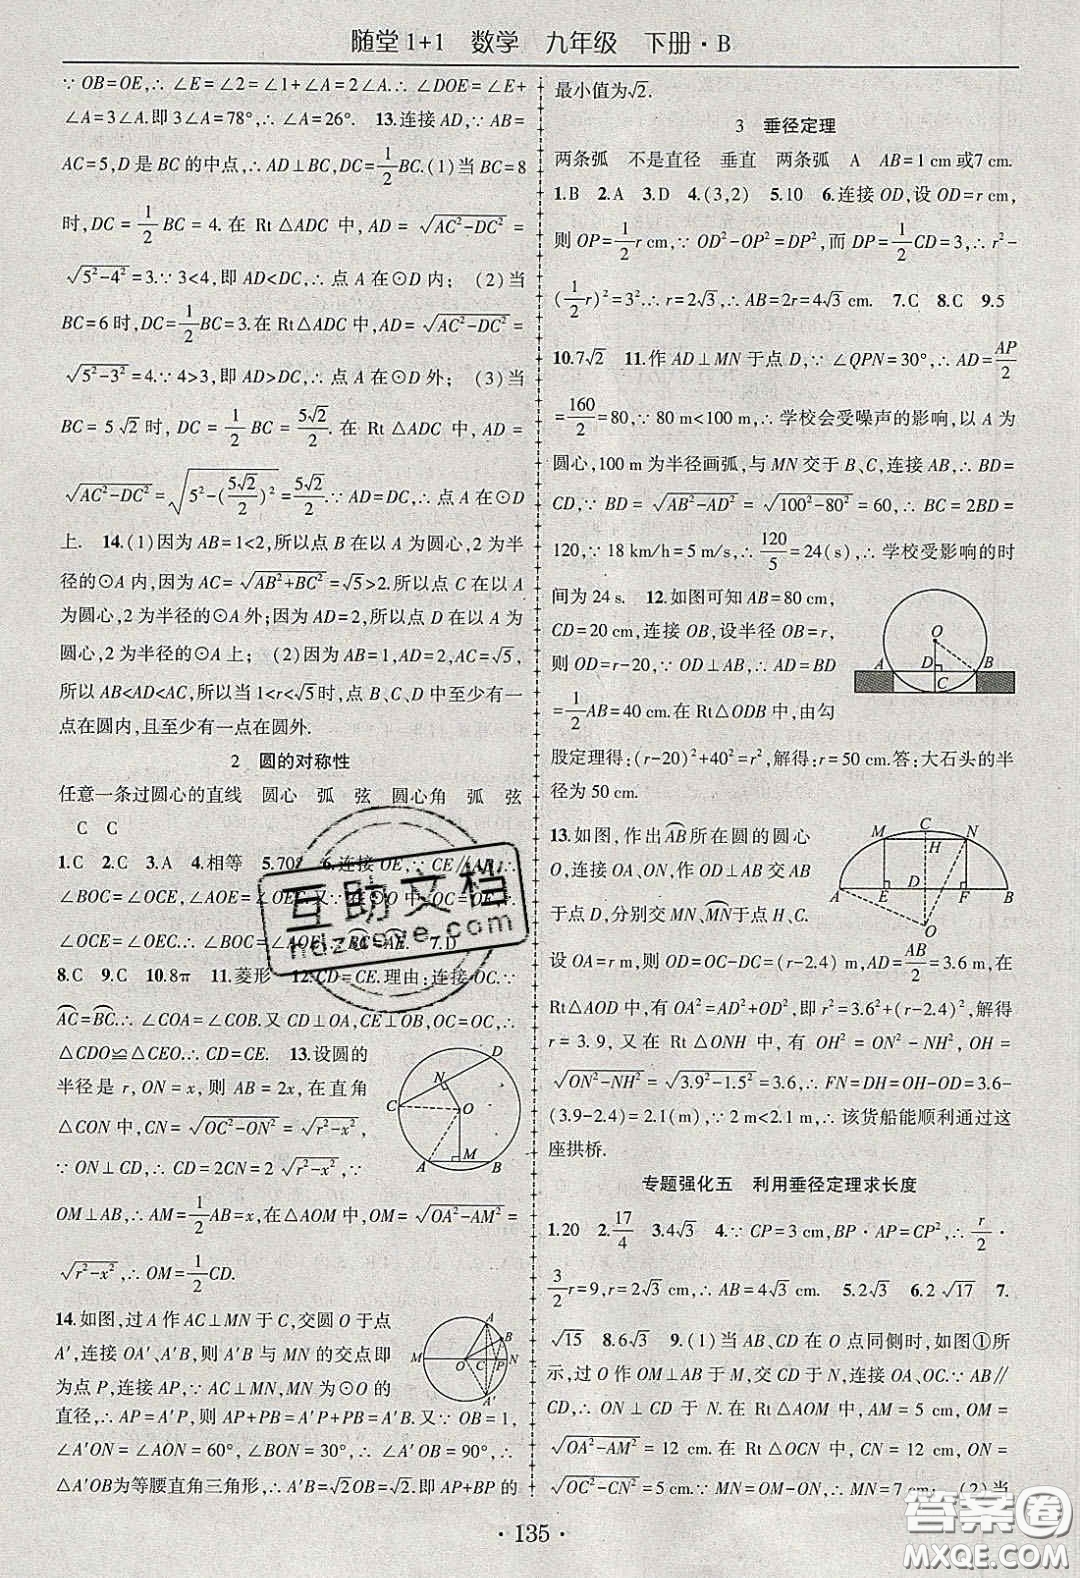 随堂1+1 数学 九年级 下册·B
∵OB=OE,∴∠E=∠2=∠1+∠A=2∠A.∴∠DOE=∠E+
∠A=3∠A.即3∠A=78°,∴∠A=26°. 13.连接AD,∵AB=
AC=5,D是BC的中点,∴AD⊥BC,DC=1/2BC.(1)当BC=8
时,DC=1/2BC=4.在Rt△ADC中,AD=√(AC²-DC²)=
√(5²-4²)=3.∵3<4,即AD<DC,∴点A在⊙D内; (2)当
BC=6时,DC=1/2BC=3.在Rt△ADC中,AD=√(AC²-DC²)=
√(5²-3²)=4.∵4>3,即AD>DC,∴点A在⊙D外; (3)当
BC=5√2时,DC=1/2BC=5√2/2.在Rt△ADC中,AD=
√(AC²-DC²)=√(5²-(5√2/2)²)=5√2/2.∵AD=DC,∴点A在⊙D
上. 14.(1)因为AB=1<2,所以点B在以A为圆心,2为半
径的⊙A内,因为AC=√(AB²+BC²)=√5>2.所以点C在以A
为圆心,2为半径的⊙A外;因为AD=2,所以点D在以A为
圆心,2为半径的⊙A上; (2)因为AB=1,AD=2,AC=√5,
所以AB<AD<AC,所以当1<r<√5时,点B、C、D中至少有一
点在圆内,且至少有一点在圆外.
2 圆的对称性
任意一条过圆心的直线 圆心 弧 弦 圆心角 弧 弦
C C
1.C 2.C 3.A 4.相等 5.70° 6.连接OE,∵CE∥AB,∴
∠BOC=∠OCE,∠AOE=∠OEC.又∵在⊙O中,OC=OE,∴
∠OCE=∠OEC.∴∠BOC=∠AOE,∴BC=AE. 7.D
8.C 9.C 10.8π 11.菱形 12.CD=CE.理由:连接OC.∵
AC=BC.∴∠COA=∠COB.又CD⊥OA,CE⊥OB,OC=OC,∴
△CDO≌△CEO.∴CD=CE. 13.设圆的
半径是r,ON=x,则AB=2x,在直角
△CON中,CN=√(OC²-ON²)=√(r²-x²),
∵ON⊥CD,∴CD=2CN=2√(r²-x²),∵
OM⊥AB,∴AM=1/2AB=x,在△AOM中,OM=√(OA²-AM²)=
√(r²-x²),∴OM=1/2CD.
C N D O A M B
14.如图,过A作AC⊥MN于C,交圆O于点
A′,连接OA′、A′B,A′B与MN的交点即
为点P,连接AP,∵AC⊥MN,MN为⊙O的
直径,∴AP=A′P,则AP+PB=A′P+BP=A′B.又∵OB=1,
∠A′ON=∠AON=60°,∠BON=30°,∴∠A′OB=90°,∴
△A′OB为等腰直角三角形,∴A′B=√2OB=√2.即AP+BP的
M A B O C P N A′
最小值为√2.
3 垂径定理
两条弧 不是直径 垂直 两条弧 A AB=1 cm或7 cm.
1.B 2.A 3.D 4.(3,2) 5.10 6.连接OD,设OD=r cm,
则OP=1/2r cm,∵OD²-OP²=DP²,而DP=1/2CD=3,∴r²-
(1/2r)²=3².∴r=2√3,∴AB=2r=4√3 cm. 7.C 8.C 9.5
10.7√2 11.作AD⊥MN于点D,∵∠QPN=30°,∴AD=AP/2
=160/2=80,∵80 m<100 m,∴学校会受噪声的影响,以A为
圆心,100 m为半径画弧,与MN交于B、C,连接AB,∴BD=
CD,∵BD=√(AB²-AD²)=√(100²-80²)=60,∴BC=2BD=
120,∵18 km/h=5 m/s,∴120/5=24(s),∴学校受影响的时
间为24 s. 12.如图可知AB=80 cm,
CD=20 cm,连接OB,设半径OB=r,
则OD=r-20,∵OD⊥AB,∴AD=BD
=1/2AB=40 cm.在Rt△ODB中,由勾
股定理得:(r-20)²+40²=r²,解得:r=50 cm.答:大石头的半
径为50 cm.
O A D B C
13.如图,作出AB所在圆的圆心
O,连接OA、ON,作OD⊥AB交AB
于点D,分别交MN、MN于点H、C.
设OA=r m,则OD=OC-DC=(r-2.4)m,AD=AB/2=3.6 m,在
Rt△AOD中,有OA²=AD²+OD²,即r²=3.6²+(r-2.4)²,解得
r=3.9,又在Rt△ONH中,有OH²=ON²-NH²,OH=
√(ON²-NH²)=√(3.9²-1.5²)=3.6.∴FN=DH=OH-OD=3.6-
(3.9-2.4)=2.1(m),∵2 m<2.1 m,∴该货船能顺利通过这
座拱桥.
M C N H A E D F B O
专题强化五 利用垂径定理求长度
1.20 2.17/4 3.4√3 4.∵CP=3 cm,BP·AP=CP²,∴r/2·
3/2r=9,r=2√3 cm,∴AB=4√3 cm. 5.2√3 6.2√17 7.
√15 8.6√3 9.(1)当AB、CD在O点同侧时,如图①所
示,过O作OM⊥AB于M,交CD于N,连接OA、OC.∵AB∥
CD,∴ON⊥CD于N.在Rt△AOM中,AM=5 cm,OM=
√(OA²-AM²)=12 cm.在Rt△OCN中,CN=12 cm,ON=
√(OC²-CN²)=5 cm,∴MN=OM-ON=7 cm; (2)当
·135·
互助文档
hdzuoye.com
答案圈
MXQE.COM